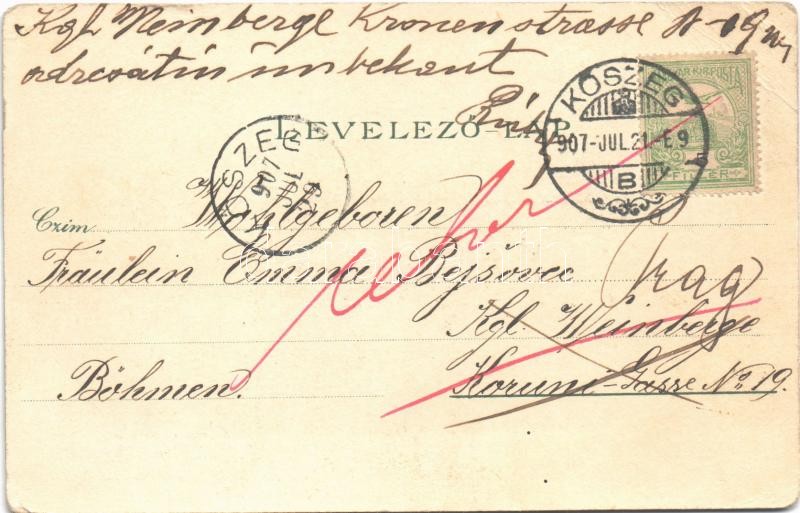 Kgl Weinberge Kronenstrasse
unbekant
MAGYAR KIR. POSTA
FILLÉR
LEVELEZŐ-LAP
KŐSZEG
907-JUL.21-E9
B
KŐSZEG
907 JUL 29
Czim
Wohlgeboren
Fräulein Emma Rejšovec
Prag
Kgl. Weinberge
Böhmen.
Koruni-Gasse No 19.